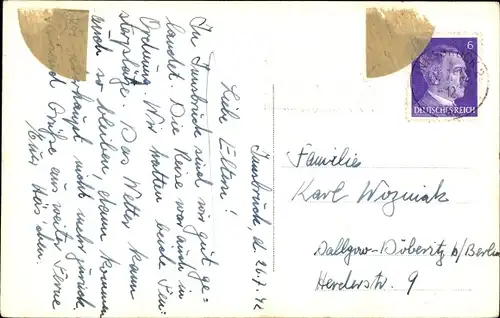 Innsbruck, d. 26.7.42
Liebe Eltern!
In Innsbruck sind wir gut ge=
landet. Die Reise war auch in
Ordnung. Wir hatten beide Fen=
sterplätze. Das Wetter kann
auch so bleiben, dann kommen
wir überhaupt nicht mehr zurück.
Grüße aus weiter Ferne
Familie
Karl Wozniak
Dallgow-Döberitz b/Berlin
Herderstr. 9
6
DEUTSCHES REICH